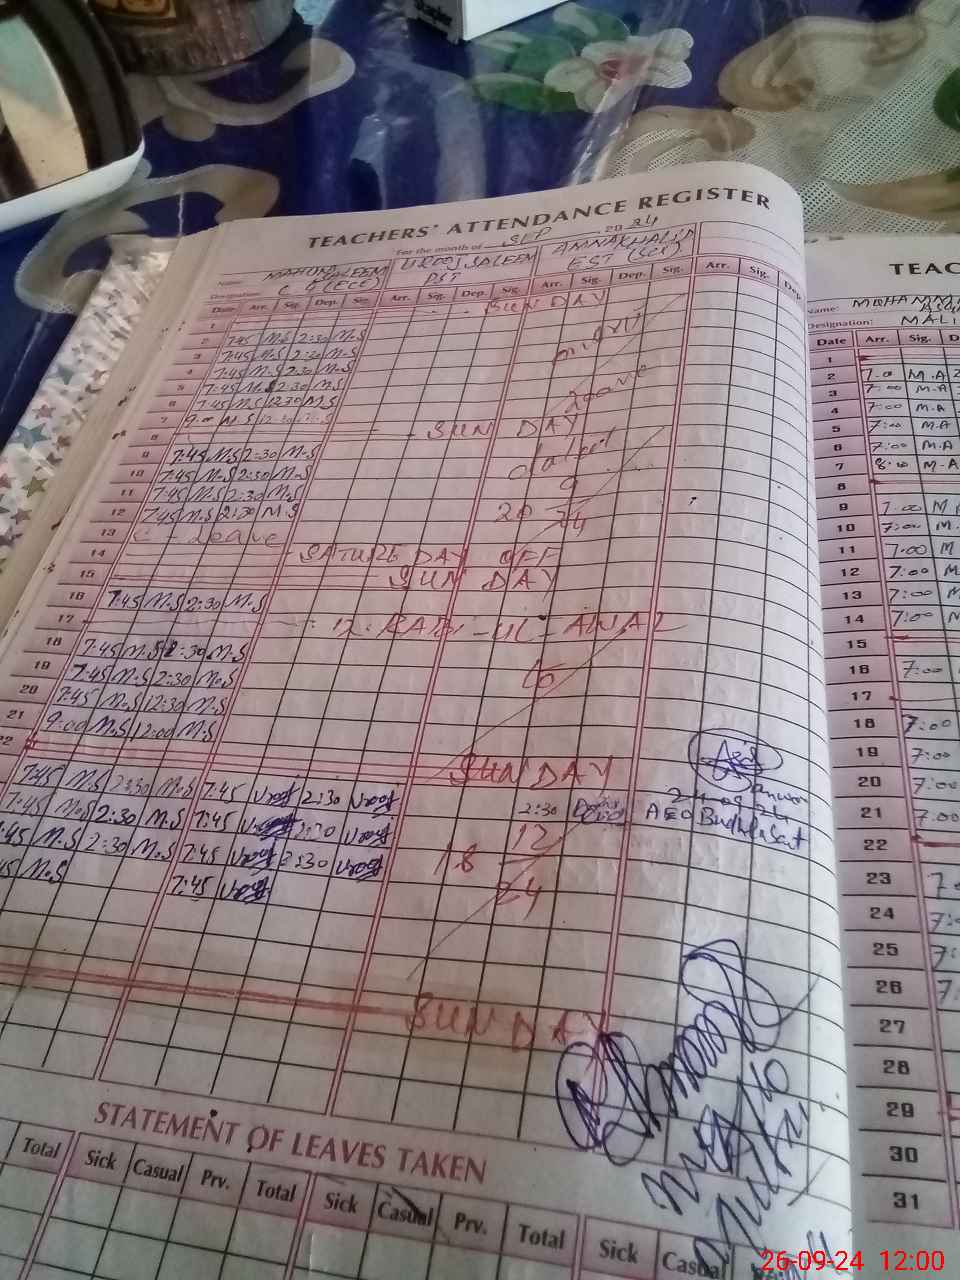 Stapler
TEACHERS' ATTENDANCE REGISTER
For the month of SEP 2024
Name: MAHUM SALEEM UROOJ SALEEM AMNA KHALID
Designation: PST EST (Sci)
Date Arr. Sig. Dep. Sig. Arr. Sig. Dep. Sig. Arr. Sig. Dep. Sig. Arr. Sig. Dep.
1 SUNDAY
2 7:45 M.S 2:30 M.S
3 7:45 M.S 2:30 M.S
4 7:45 M.S 2:30 M.S
5 7:45 M.S 2:30 M.S
6 7:45 M.S 12:30 M.S
7 9:00 M.S 12:30
leave
8 SUN DAY
9 7:45 M.S 2:30 M.S
10 7:45 M.S 2:30 M.S
11 7:45 M.S 2:30 M.S
12 7:45 M.S 2:30 M.S
13 C - Leave
14 SATUREDAY OFF
15 SUN DAY
16 7:45 M.S 2:30 M.S
17 12. RABI-UL-AWAL
18 7:45 M.S 2:30 M.S
to
19 7:45 M.S 2:30 M.S
20 7:45 M.S 12:30 M.S
21 9:00 M.S 12:00 M.S
22 SUNDAY
7:45 M.S 2:30 M.S 7:45 Urooj 2:30 Urooj
7:45 M.S 2:30 M.S 7:45 Urooj 2:30 Urooj 2:30
24 09 24
AEO
:45 M.S 2:30 M.S 7:45 Urooj 2:30 Urooj 18 12 24
45 M.S 7:45 Urooj
SUNDAY
STATEMENT OF LEAVES TAKEN
Total Sick Casual Prv. Total Sick Casual Prv. Total Sick Casual
TEAC
Name: MOHAMMA
Designation: MALI
Date Arr. Sig. D
1
2 7:00 M.A 2
3 7:00 M.A
4 7:00 M.A
5 7:00 M.A
6 7:00 M.A
7 8:00 M.A
8
9 7:00 M
10 7:00 M
11 7:00 M
12 7:00 M
13 7:00 M
14 7:00 M
15
16 7:00
17
18 7:00
19 7:00
20 7:00
21 7:00
22
23 7:
24 7:
25 7:
26 7:
27
28
29
30
31
26-09-24 12:00